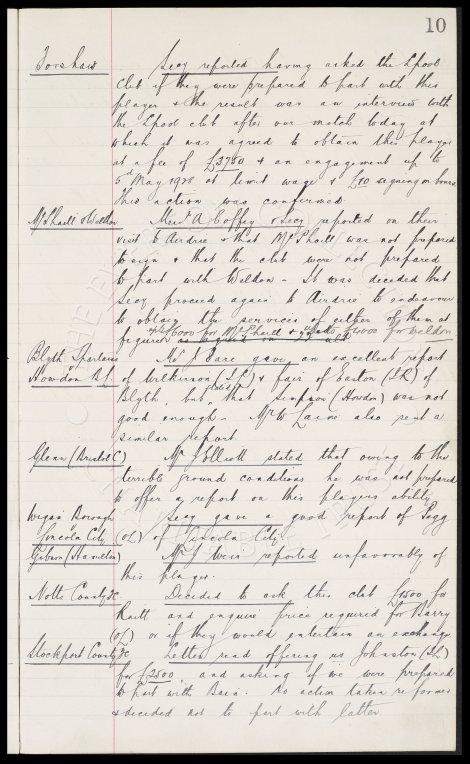 10
Forshaw Secy reported having asked the Lpool
club if they were prepared to part with this
player & the result was an interview with
the Lpool club after our match today at
which it was agreed to obtain this player
at a fee of £3750 & an engagement up to
5th May 1928 at limit wage & £10 signing on bonus
this action was confirmed
McPhaill & Weldon Messrs A Coffey & Secy reported on their
visit to Airdrie & that McPhaill was not prepared
to sign & that the club were not prepared
to part with Weldon - It was decided that
Secy proceed again to Airdrie to endeavour
to obtain the services of either of them at
£6000 for McPhaill & £4000 for Weldon
figures
Blyth Spartans Mr J Care gave an excellent report
Howdon B.L. of Wilkinson & Fair of Easton of
Blyth, but that Simpson (Howdon) was not
good enough - Mr W also sent a
similar report.
Glenn (Bristol C) Mr J Elliott stated that owing to the
terrible ground conditions he was not prepared
to offer a report on this players ability
Wigan Borough Secy gave a good report of
Lincoln City (OL) of Lincoln City
Gibson (Hamilton) Mr J Weir reported unfavorably of
this player.
Notts County FC Decided to ask this club for
and enquire price required for Barry
(OL) or if they would entertain an exchange
Stockport County FC Letter read offering us Johnston
for £2500, and asking if we were prepared
to part with Bain. No action taken re former
& decided not to part with latter